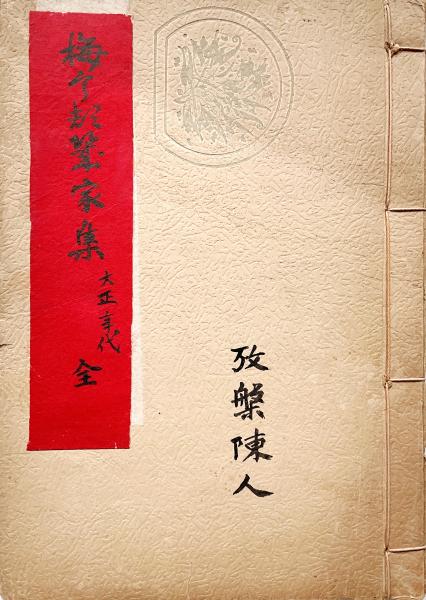 梅
家集
大正年代
全
攷槃陳人